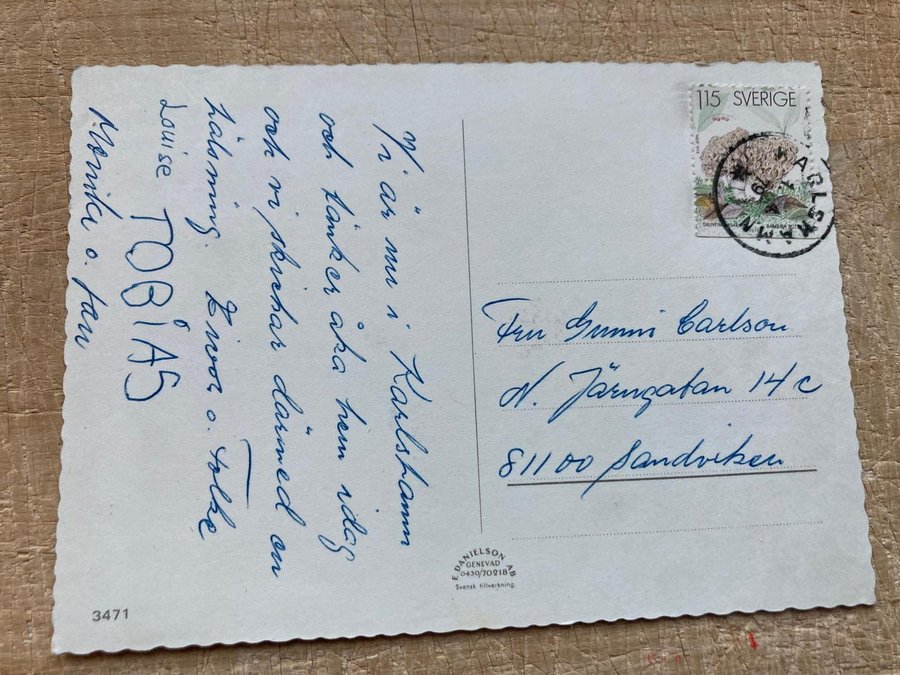 Vi är nu i Karlshamn
och tänker åka hem idag
och vi skickar därmed en
hälsning. Eivor o. Folke
Louise TOBIAS
Monika o. Jan
115 SVERIGE
KARLSHAMN
Fru Gunni Carlson
N. Järngatan 14 c
81100 Sandviken
E. DANIELSON AB
GENEVAD
0430/70218
Svensk tillverkning
3471